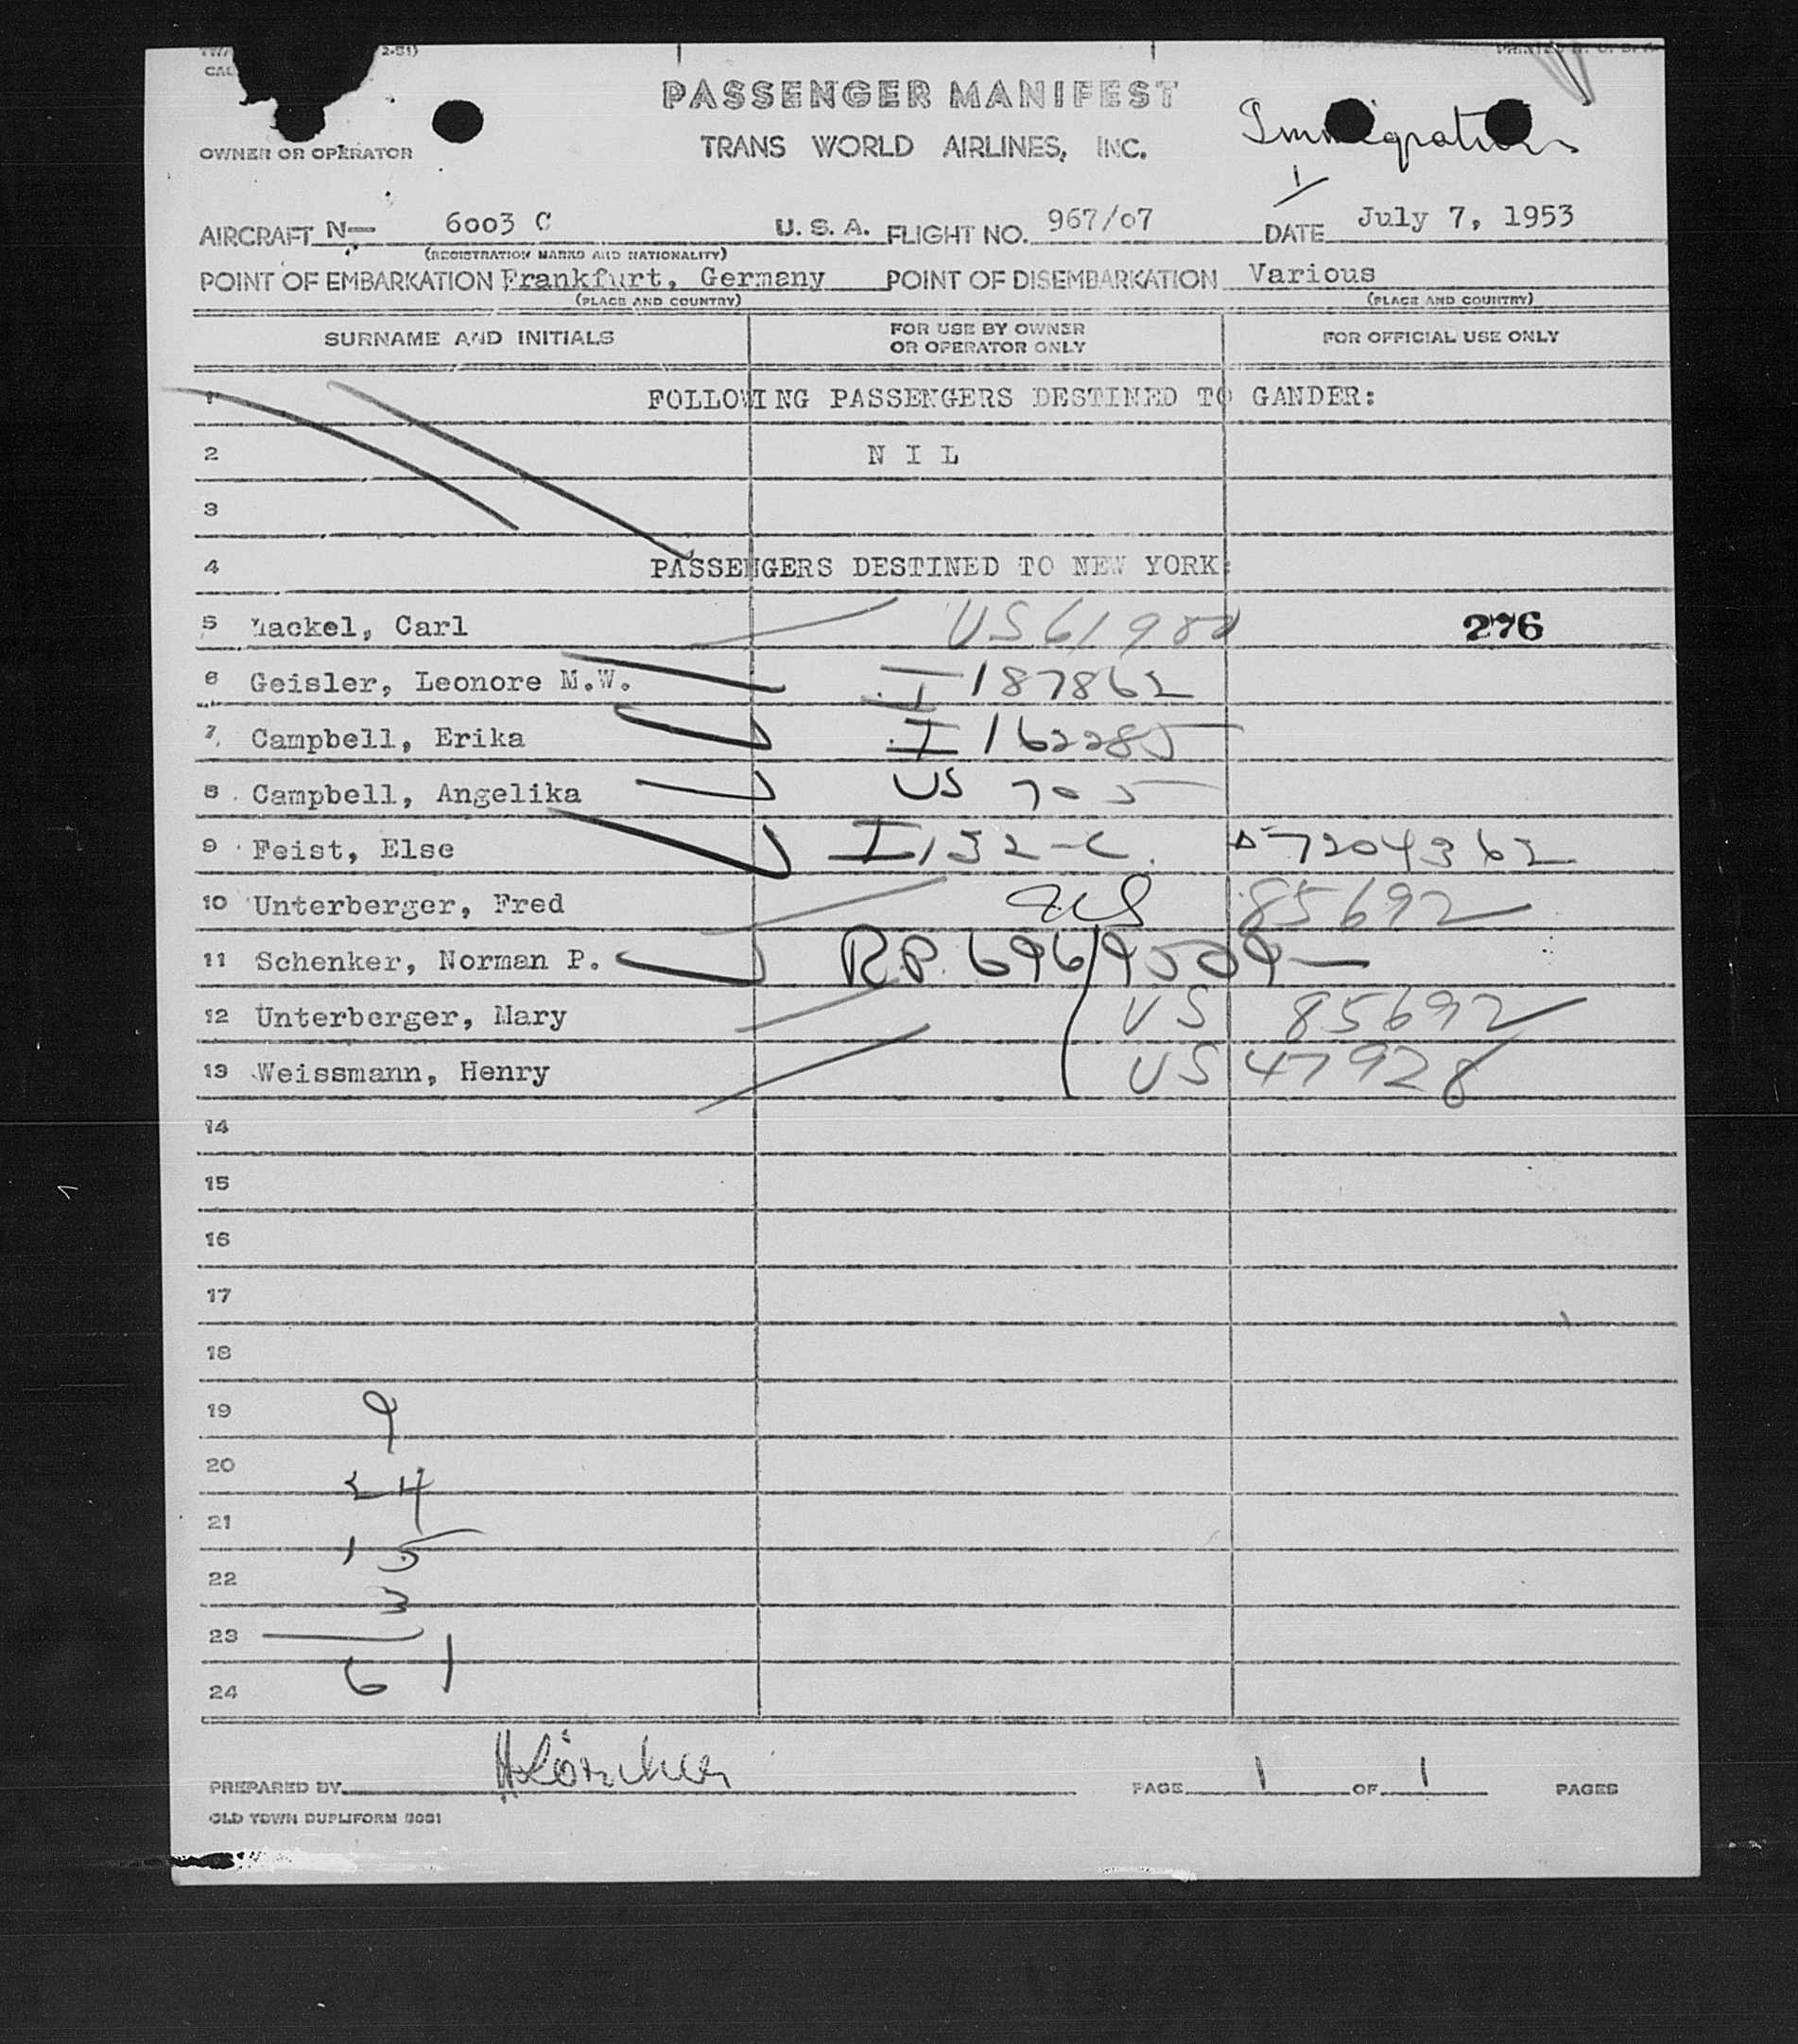 2-51)
PRINTED IN U. S. A.
PASSENGER MANIFEST
Immigration
OWNER OR OPERATOR
TRANS WORLD AIRLINES, INC.
1
AIRCRAFT N- 6003 C U. S. A. FLIGHT NO. 967/07 DATE July 7, 1953
(REGISTRATION MARKS AND NATIONALITY)
POINT OF EMBARKATION Frankfurt, Germany POINT OF DISEMBARKATION Various
(PLACE AND COUNTRY) (PLACE AND COUNTRY)
SURNAME AND INITIALS FOR USE BY OWNER OR OPERATOR ONLY FOR OFFICIAL USE ONLY
1 FOLLOWING PASSENGERS DESTINED TO GANDER:
2 N I L
3
4 PASSENGERS DESTINED TO NEW YORK:
5 Carl 276
6 Geisler, Leonore M.W. I 187862
7 Campbell, Erika I 162285
8 Campbell, Angelika US 705
9 Feist, Else I 132-C. 7204362
10 Unterberger, Fred US 85692
11 Schenker, Norman P. RP 696/9509
12 Unterberger, Mary US 85692
13 Weissmann, Henry US 47928
14
15
16
17
18
19 9
20 24
21 15
22 3
23
24 61
PREPARED BY PAGE 1 OF 1 PAGES
OLD TOWN DUPLIFORM